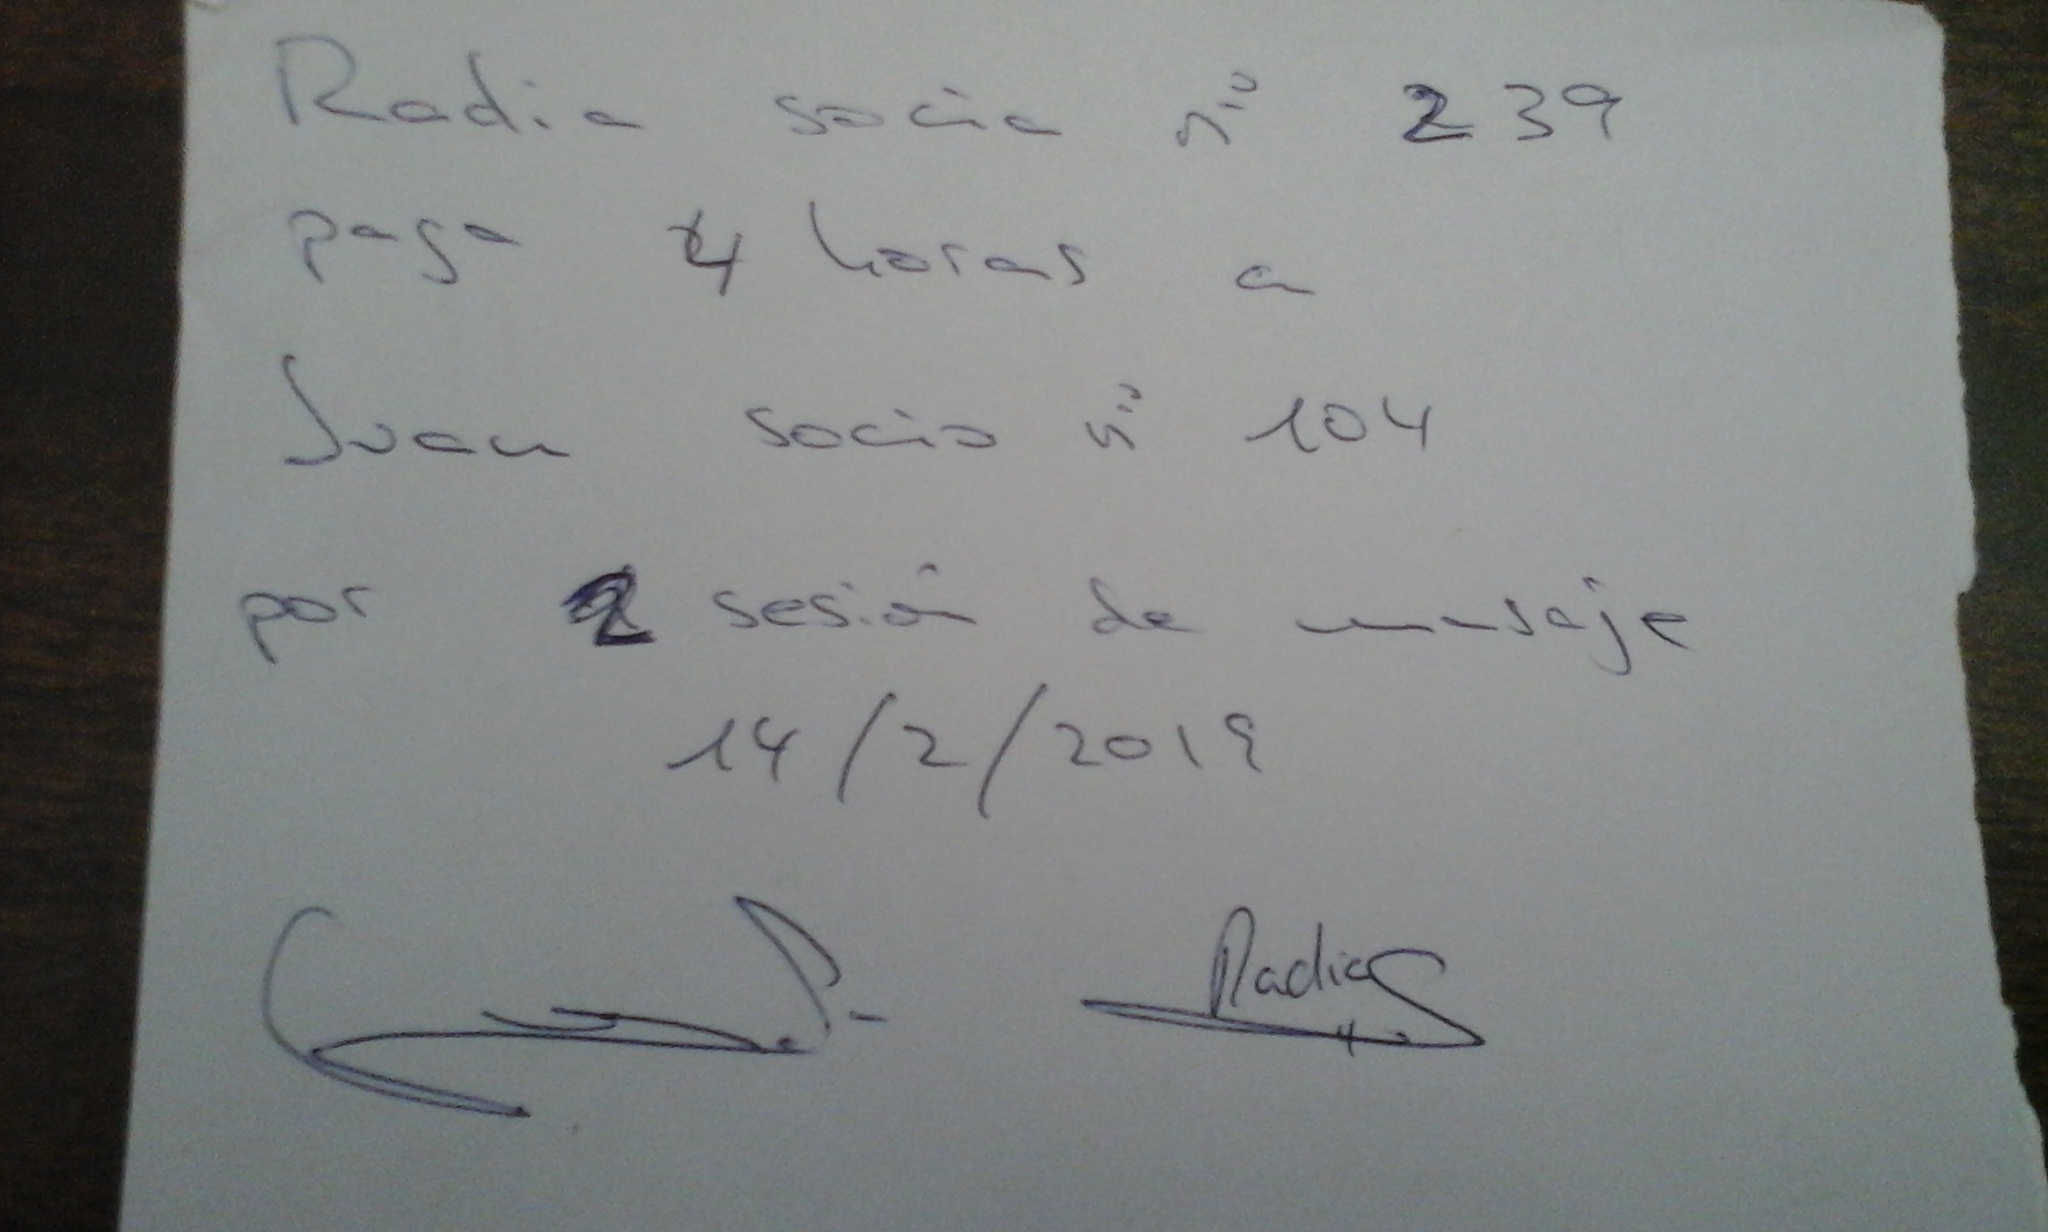 Radia socia nº 239
paga 4 horas a
Juan socio nº 104
por 2 sesión de masaje
14/2/2019
Radia